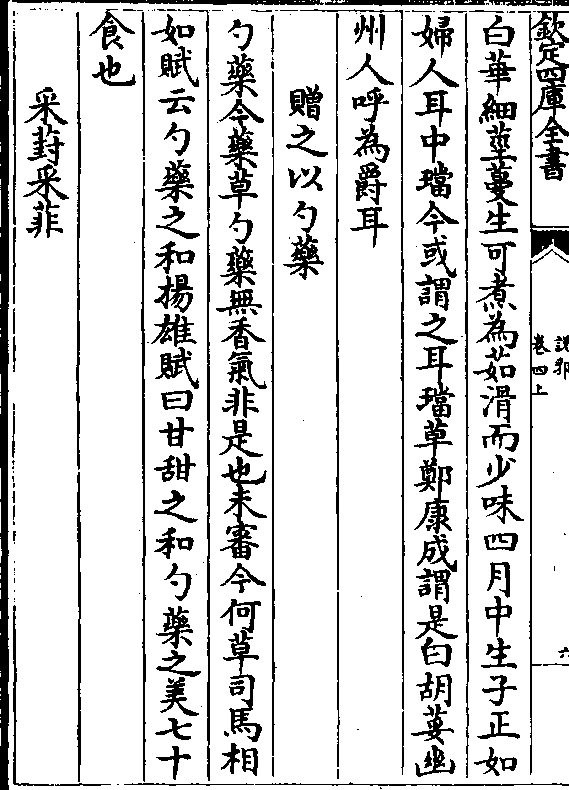 欽定四庫全書
說郛
卷四上
六
白華細莖蔓生可煮為茹滑而少味四月中生子正如
婦人耳中璫今或謂之耳璫草鄭康成謂是白胡荽幽
州人呼為爵耳
贈之以勺藥
勺藥今藥草勺藥無香氣非是也未審今何草司馬相
如賦云勺藥之和揚雄賦曰甘甜之和勺藥之美七十
食也
采葑采菲